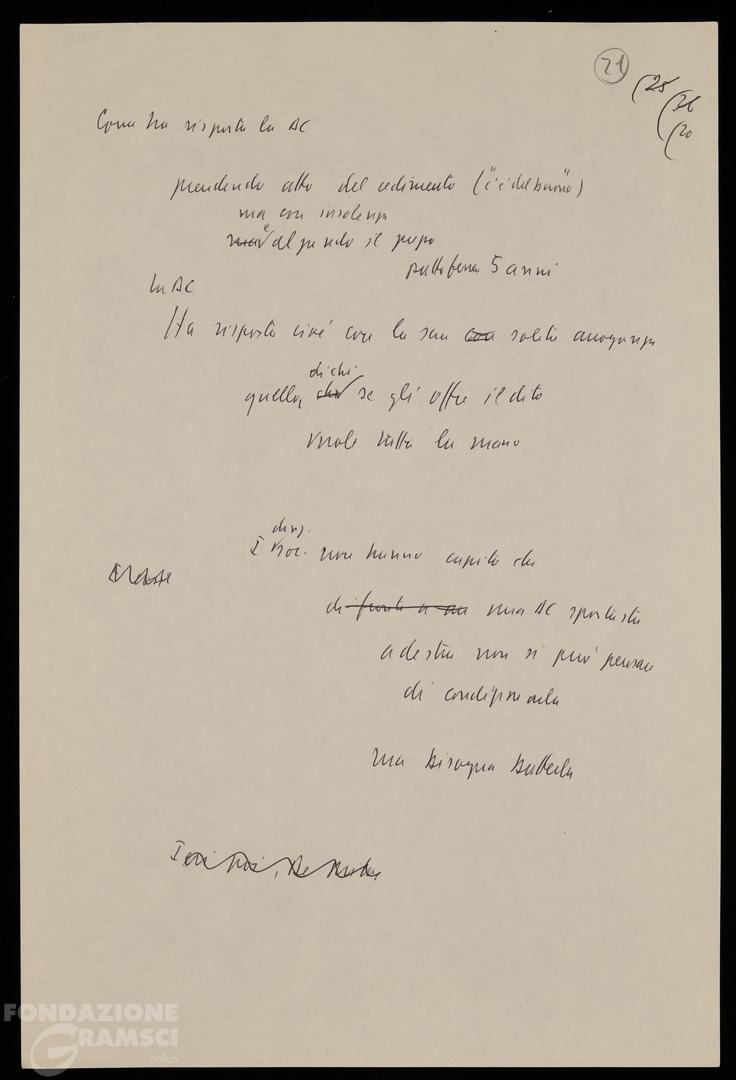 21
(25
(26
(20
Come ha risposto la DC
prendendo atto del cedimento ("c'è del buono")
ma con insolenza
ma e alzando il prezzo
piattaforma 5 anni
la DC
Ha risposto cioè con la sua con solita arroganza
di chi
quella, che se gli offre il dito
vuole tutta la mano
dirig.
I soc. non hanno capito che
di fronte a una DC spostata
a destra non si può pensare
di condizionarla
ma bisogna batterla
Ieri poi, De Mita
FONDAZIONE
GRAMSCI
onlus